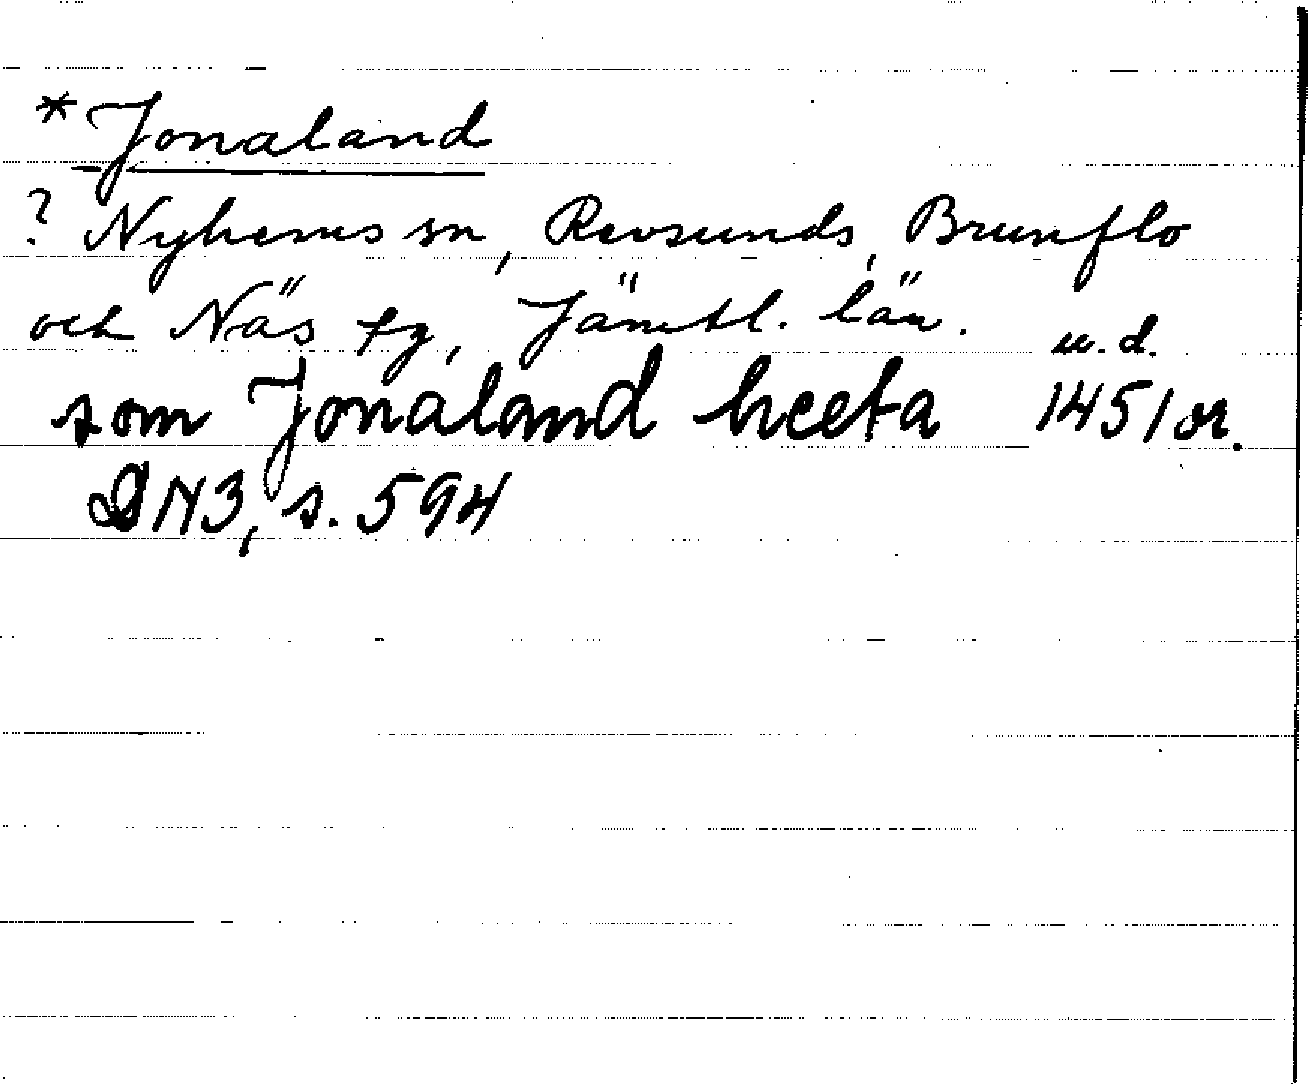 *Jonaland
? Nyhems sn, Revsunds, Brunflo
och Näs tg, Jämtl. län.
u.d.
som Jonaland heeta 1451 or.
DN3, s. 594